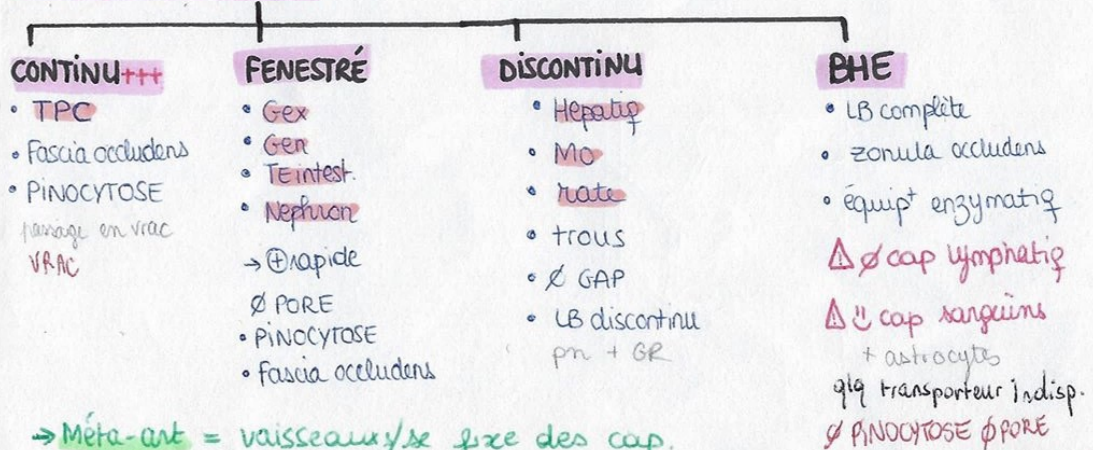 CONTINU+++
• TPC
• Fascia occludens
• PINOCYTOSE
passage en vrac
VRAC
FENESTRÉ
• Gex
• Gen
• TE intest.
• Nephron
→ ⊕ rapide
Ø PORE
• PINOCYTOSE
• fascia occludens
DISCONTINU
• Hépatiq
• Mo
• rate
• trous
• Ø GAP
• LB discontinu
pn + GR
BHE
• LB complète
• zonula occludens
• équipt enzymatiq
⚠ Ø cap lymphatiq
⚠ cap sanguins
+ astrocytes
qlq transporteur indisp.
Ø PINOCYTOSE Ø PORE
→ Méta-art = vaisseaux/se fixe des cap.